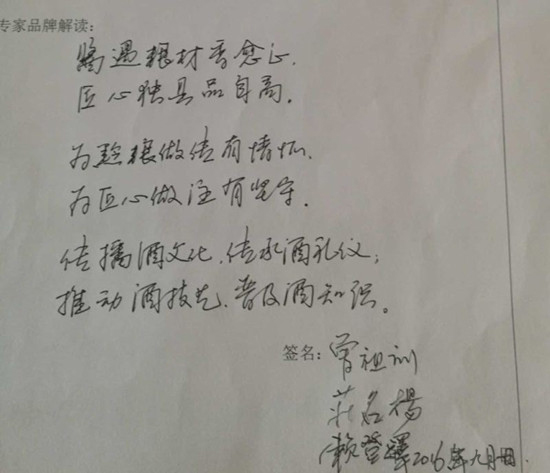 专家品牌解读:
酱遇粮材香愈正.
匠心独具品自高。
为趁粮做传有情怀.
为匠心做注有坚守.
传播酒文化、传承酒礼仪;
推动酒技艺、普及酒知识。
签名: 曾祖训
庄名扬
赖登燡 2016年九月 日.